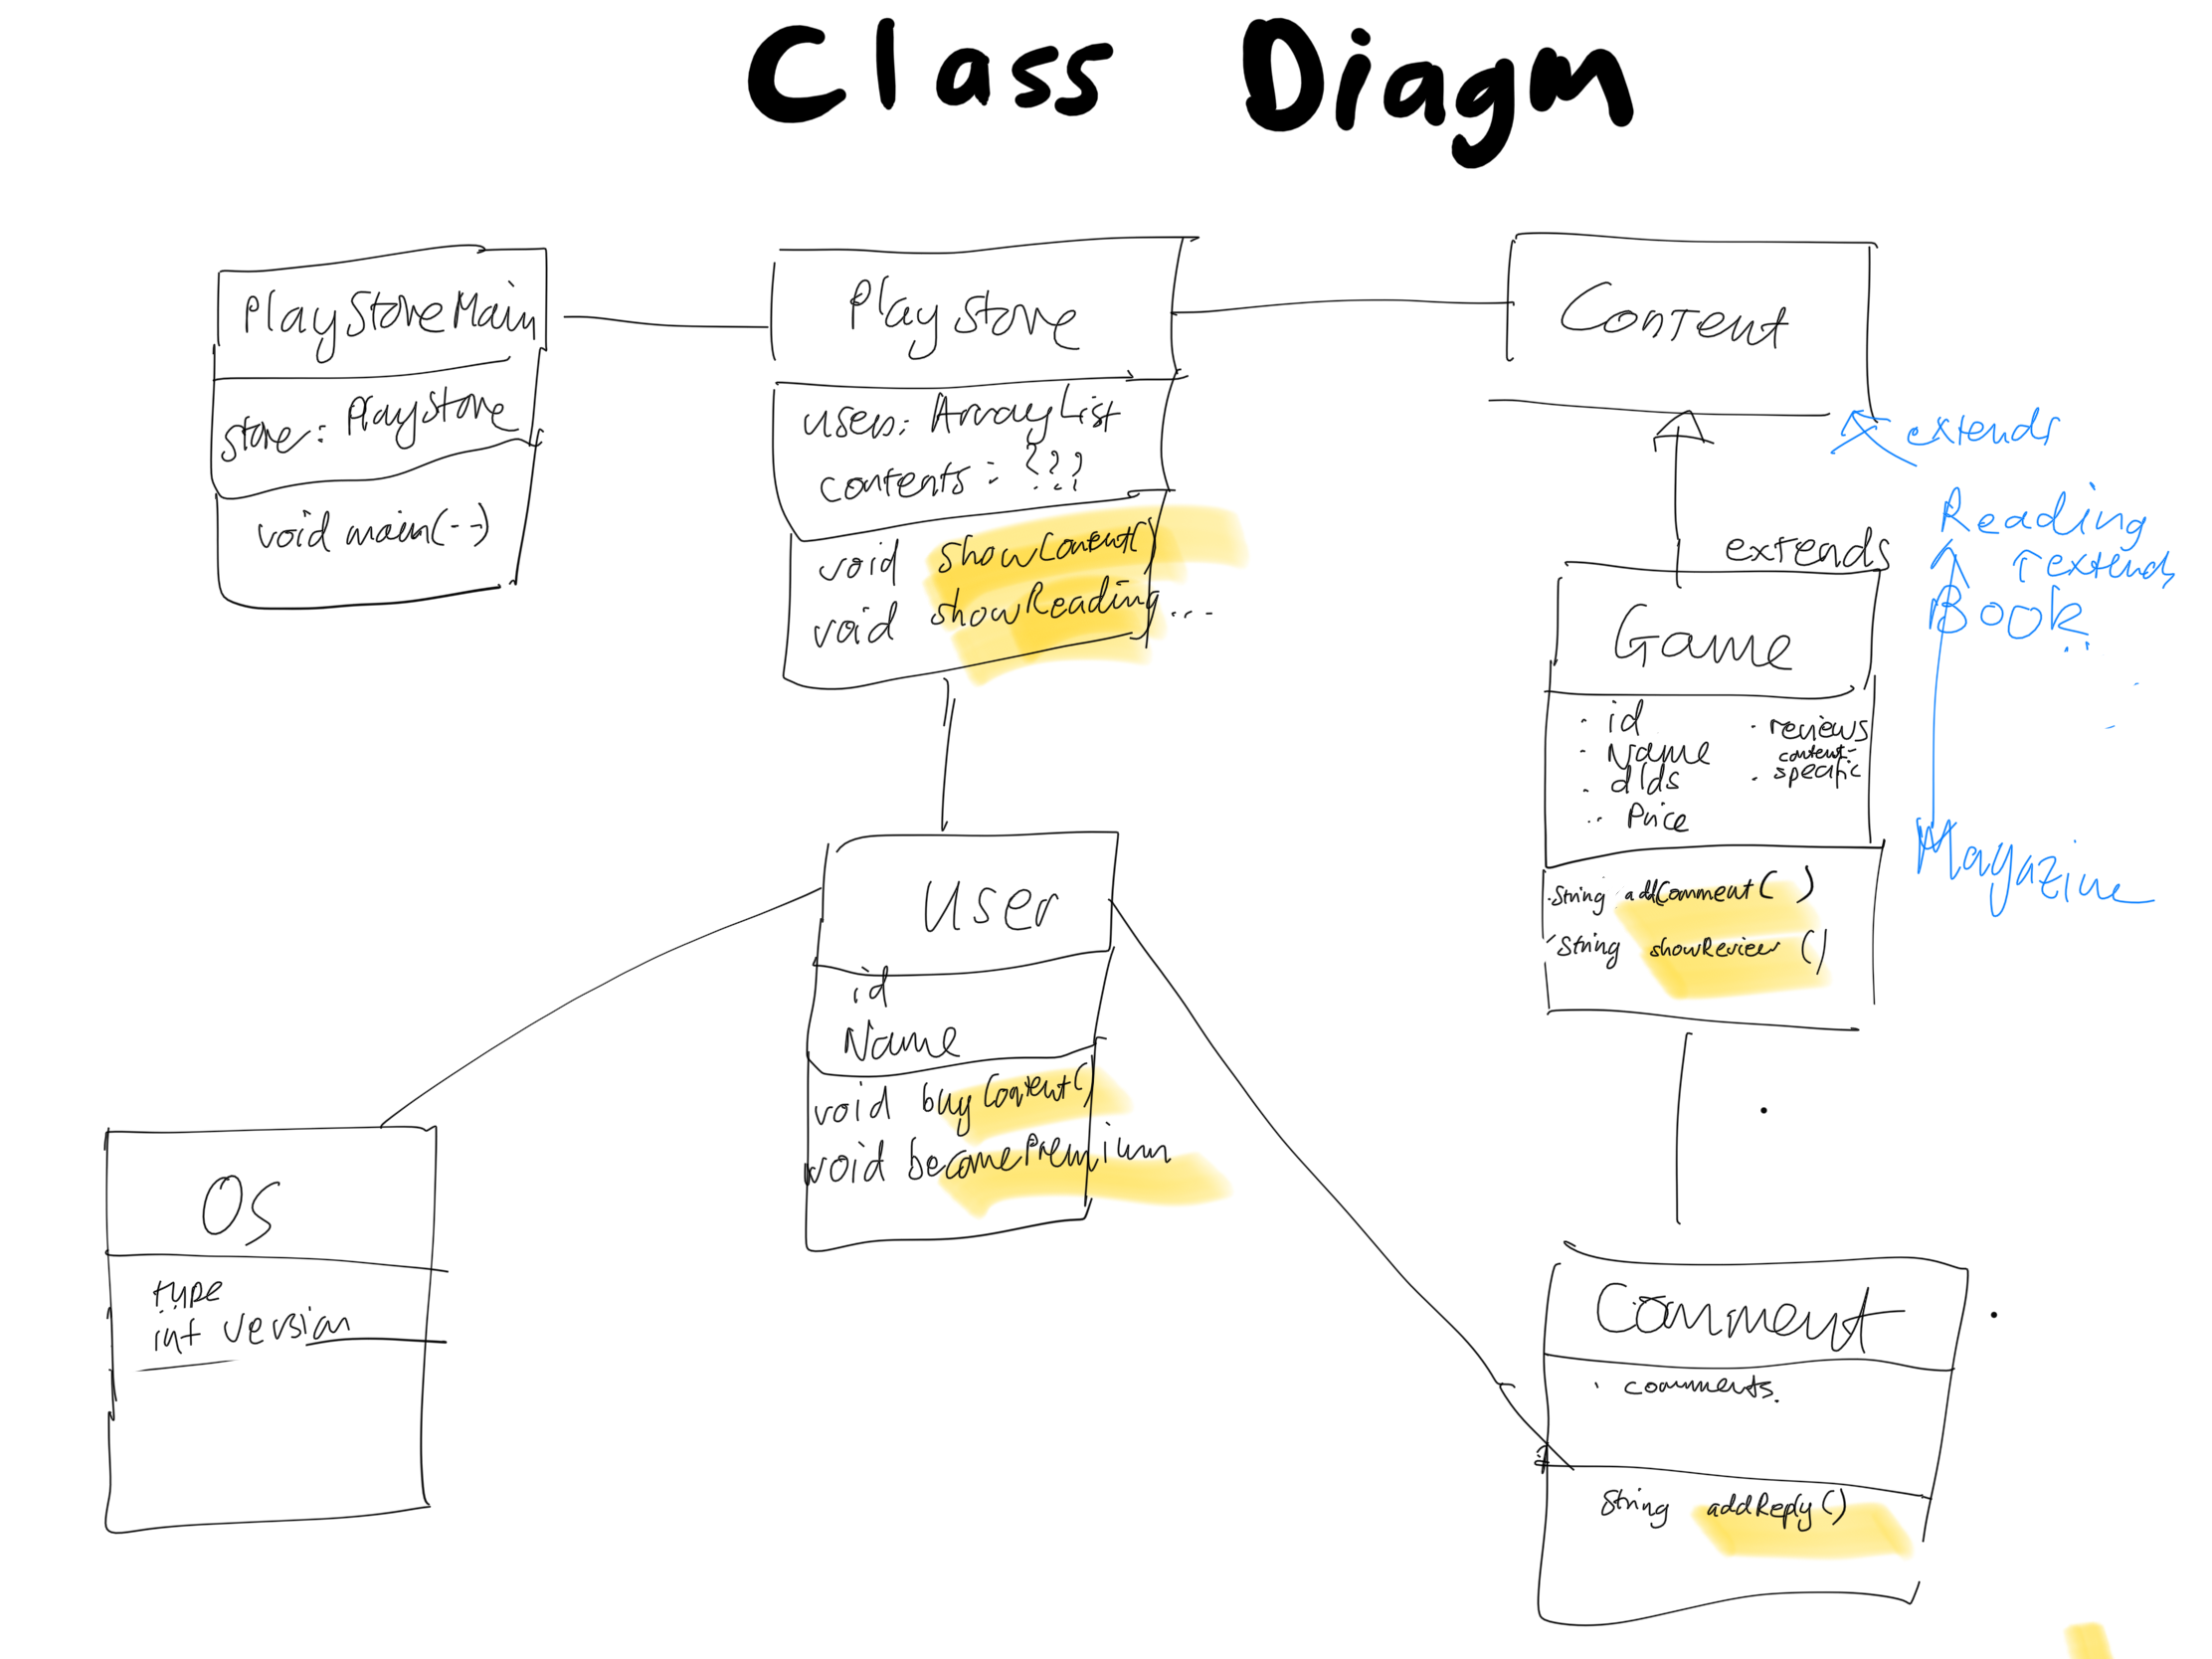 Class Diagm
PlayStoreMain
store: PlayStore
void main(--)
PlayStore
users: ArrayList
contents: ???
void showContent()
void showReading...
Content
extends
Reading
extends
Book
Magazine
extends
Game
· id
· Name
· dlds
· Price
· reviews
content-
· specific
· String addComment( )
String showReview ()
User
id
Name
void buyContent()
void becomePremium
OS
type
int version
Comment
· comments.
String addReply()